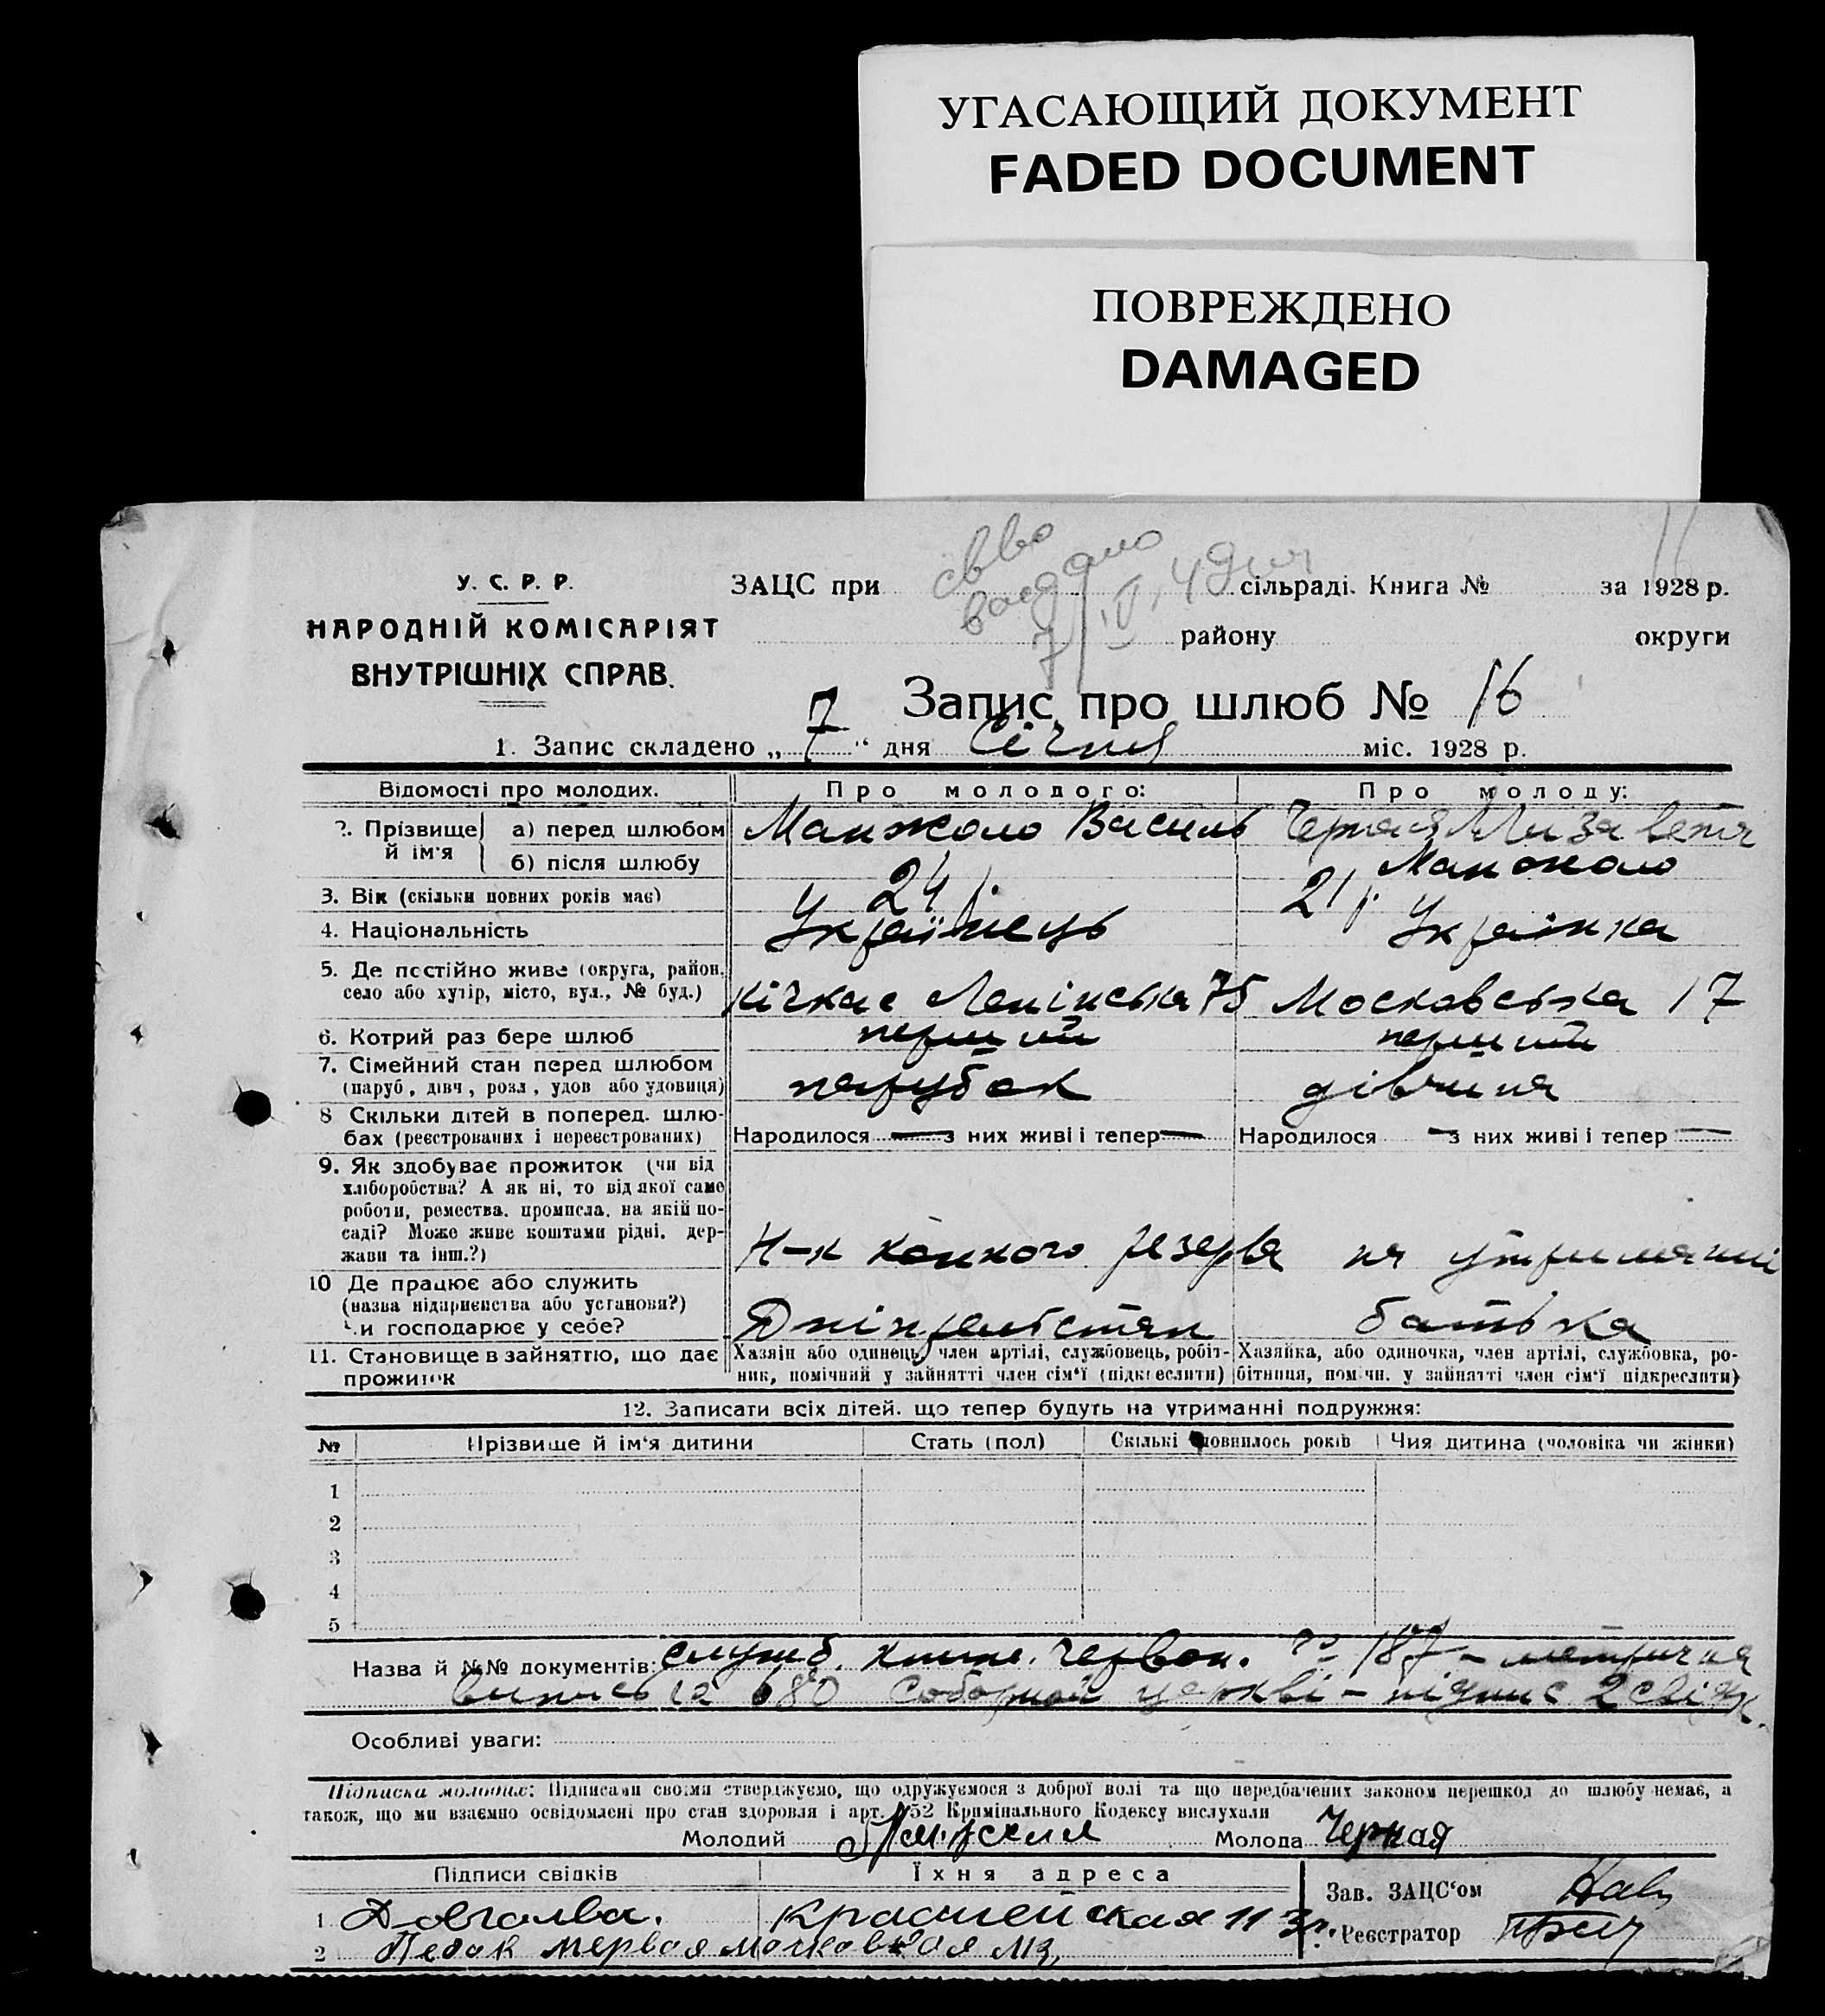 УГАСАЮЩИЙ ДОКУМЕНТ
FADED DOCUMENT
ПОВРЕЖДЕНО
DAMAGED
У. С. Р. Р.
НАРОДНІЙ КОМІСАРІЯТ
ВНУТРІШНІХ СПРАВ.
ЗАЦС при сільраді. Книга № за 1928 р.
району округи
Запис про шлюб № 16
1. Запис складено „ 7 “ дня Січня міс. 1928 р.
Відомості про молодих. Про молодого: Про молоду:
2. Прізвище й ім'я а) перед шлюбом Манжоло Василь Черная Лизавета
б) після шлюбу Манжоло
3. Вік (скільки повних років має) 24 р. 21 р.
4. Національність Українець Українка
5. Де постійно живе (округа, район, село або хутір, місто, вул., № буд.) Кічкас Ленінська 75 Московська 17
6. Котрий раз бере шлюб перший перший
7. Сімейний стан перед шлюбом (паруб, дівч, розл, удов або удовиця) парубок дівчина
8 Скільки дітей в поперед. шлюбах (реєстрованих і нереєстрованих) Народилося — з них живі і тепер — Народилося — з них живі і тепер —
9. Як здобуває прожиток (чи від
хліборобства? А як ні, то від якої саме
роботи, ремества, промисла, на якій по-
саді? Може живе коштами рідні, дер-
жави та інш.?) Н-к конного резерва на утриманні
10 Де працює або служить
(назва підприємства або установи?)
Чи господарює у себе? батька
11. Становище в зайняттю, що дає прожиток
Хазяїн або одинець, член артілі, службовець, робіт-
ник, помічний у зайнятті член сім'ї (підкреслити)
Хазяйка, або одиночка, член артілі, службовка, ро-
бітниця, помічн. у зайнятті член сім'ї підкреслити)
12. Записати всіх дітей, що тепер будуть на утриманні подружжя:
№ Прізвище й ім'я дитини Стать (пол) Скількі повнилось років Чия дитина (чоловіка чи жінки)
1
2
3
4
5
Назва й №№ документів: служб. книж. червон. № 187 – метрична
випись № 680 Соборной церкві – підпис 2 свідк.
Особливі уваги:
Підписка молодих: Підписами своїми стверджуємо, що одружуємося з доброї волі та що передбачених законом перешкод до шлюбу немає, а
також, що ми взаємно освідомлені про стан здоровля і арт. 152 Кримінального Кодексу вислухали
Молодий Молода Черная
Підписи свідків Їхня адреса
1 Довгалева. Красногвардейская 11
2 Первая Московская 113,
Зав. ЗАЦС'ом
Реєстратор